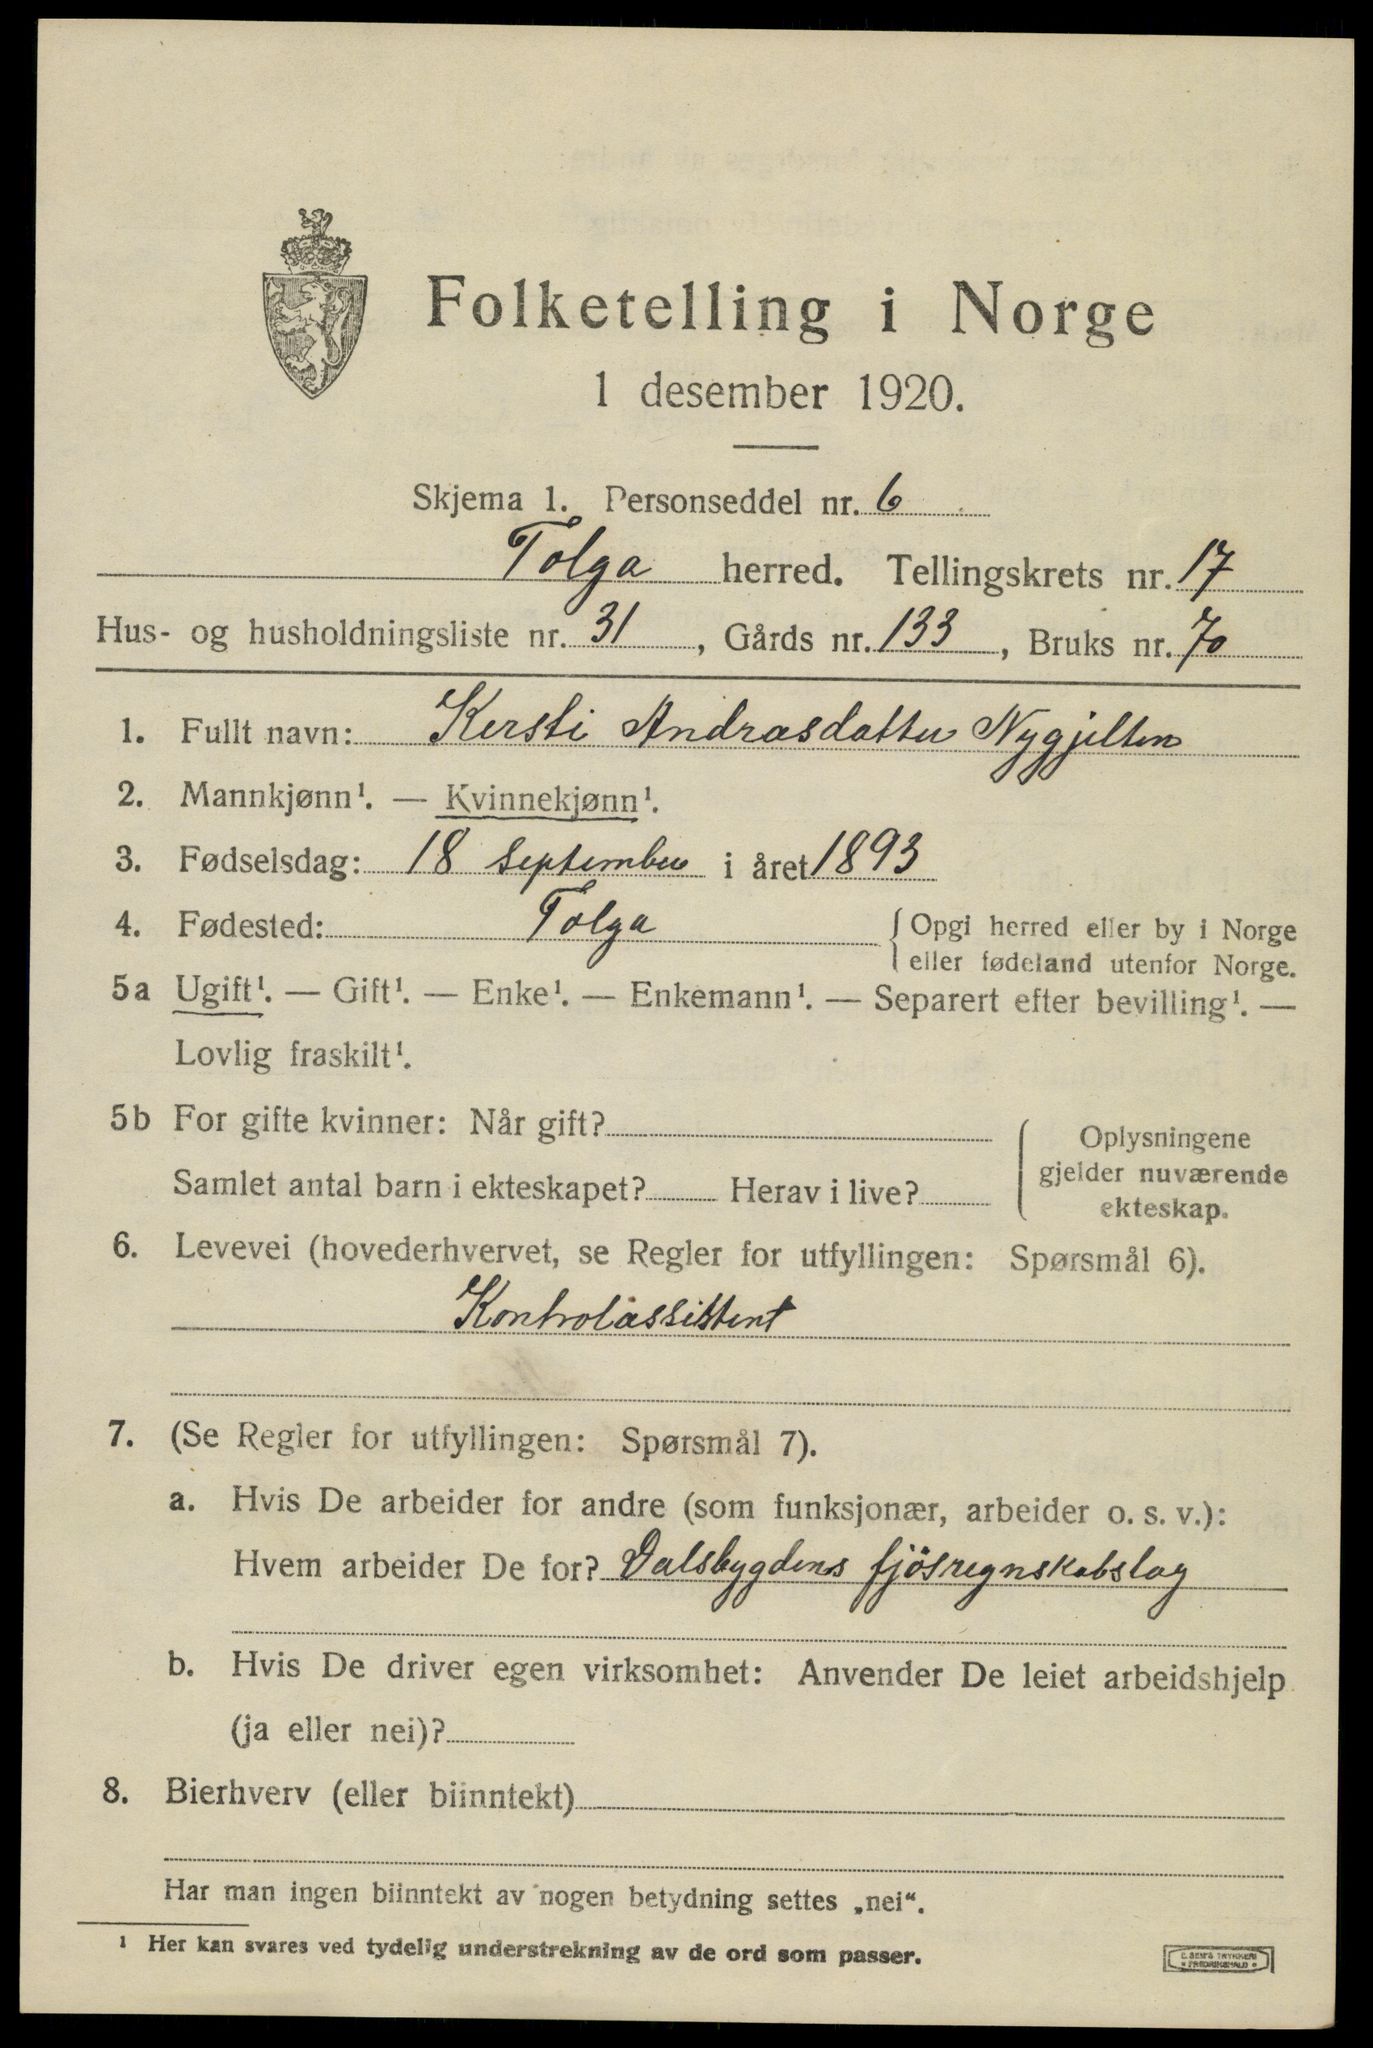 Folketelling i Norge
1 desember 1920.
Skjema 1. Personseddel nr. 6
Tolga herred. Tellingskrets nr. 17
Hus- og husholdningsliste nr. 31, Gårds nr. 133, Bruks nr. 70
1. Fullt navn: Kersti Andrasdatter Nygjelten
2. Mannkjønn¹. — Kvinnekjønn¹.
3. Fødselsdag: 18 september i året 1893
4. Fødested: Tolga { Opgi herred eller by i Norge
eller fødeland utenfor Norge.
5a Ugift¹. — Gift¹. — Enke¹. — Enkemann¹. — Separert efter bevilling¹. —
Lovlig fraskilt¹.
5b For gifte kvinner: Når gift?
Samlet antal barn i ekteskapet? Herav i live?
{ Oplysningene
gjelder nuværende
ekteskap.
6. Levevei (hovederhvervet, se Regler for utfyllingen: Spørsmål 6).
Kontrolassistent
7. (Se Regler for utfyllingen: Spørsmål 7).
a. Hvis De arbeider for andre (som funksjonær, arbeider o. s. v.):
Hvem arbeider De for? Dalsbygdens fjösregnskabslag
b. Hvis De driver egen virksomhet: Anvender De leiet arbeidshjelp
(ja eller nei)?
8. Bierhverv (eller biinntekt)
Har man ingen biinntekt av nogen betydning settes „nei“.
¹ Her kan svares ved tydelig understrekning av de ord som passer.
E. SEM'S TRYKKERI
• FREDRIKSHALD •